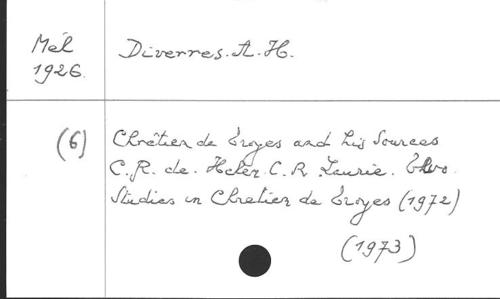 Mél
1926.
Diverres. A. H.
(6)
Chrétien de Troyes and his Sources
C. R. de. C. R. Laurie. Two
Studies in Chretien de Troyes (1972)
(1973)